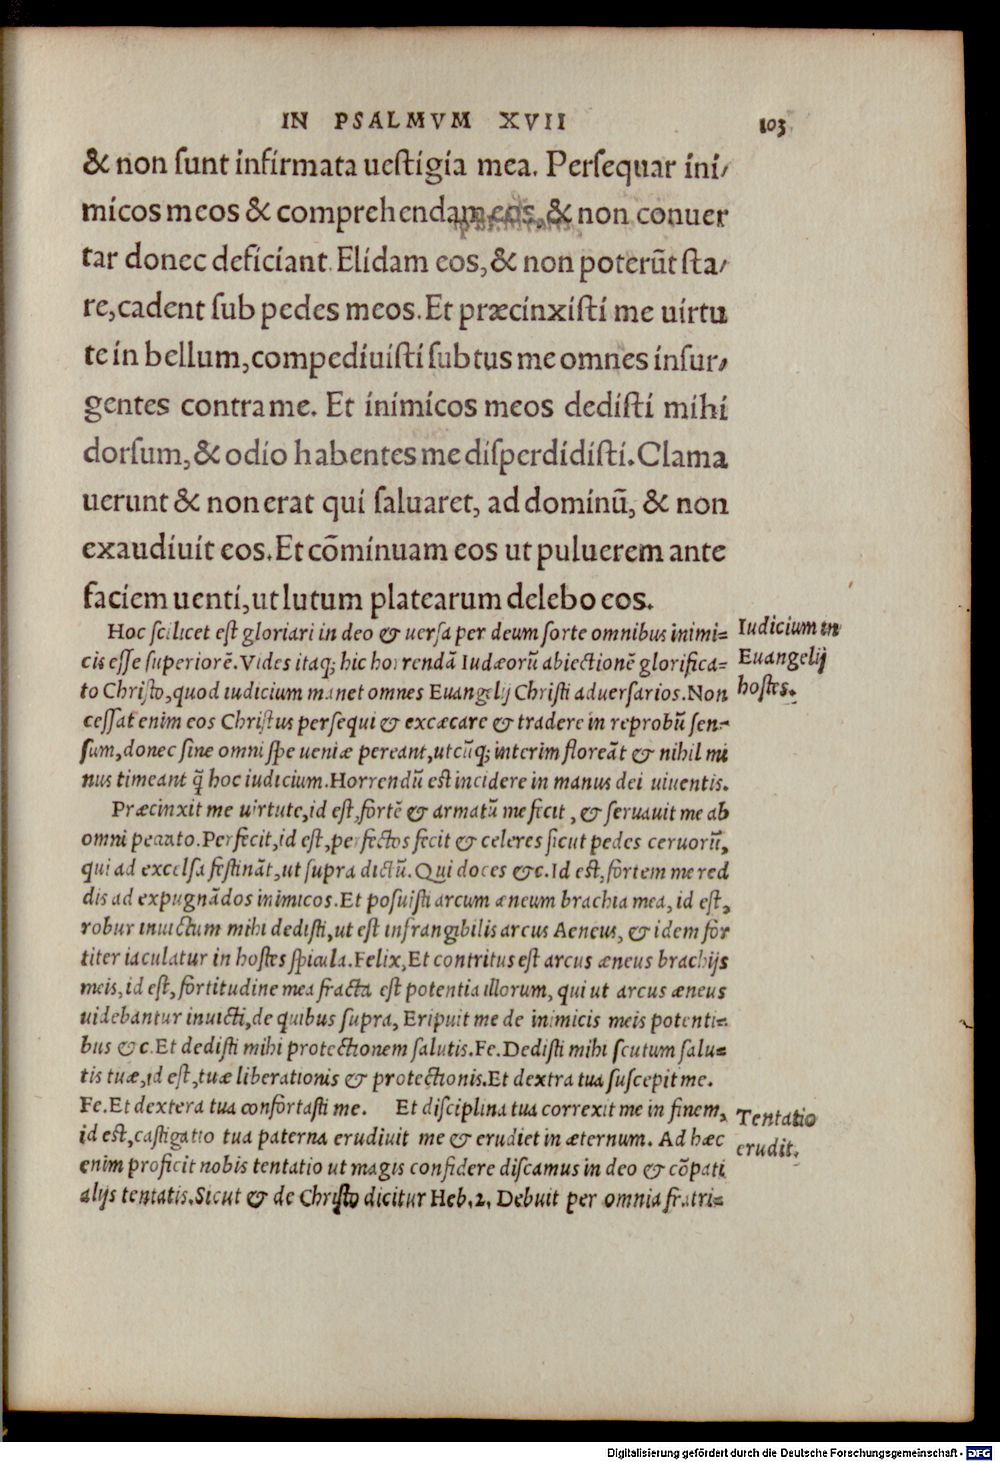 IN PSALMVM XVII 103
& non ſunt infirmata ueſtigia mea. Perſequar ini/
micos meos & comprehendam eos, & non conuer
tar donec deficiant. Elidam eos, & non poterũt ſta/
re, cadent ſub pedes meos. Et præcinxiſti me uirtu
te in bellum, compediuiſti ſubtus me omnes inſur/
gentes contra me. Et inimicos meos dediſti mihi
dorſum, & odio habentes me diſperdidiſti. Clama
uerunt & non erat qui ſaluaret, ad dominũ, & non
exaudiuit eos. Et cõminuam eos ut puluerem ante
faciem uenti, ut lutum platearum delebo eos.
Hoc ſcilicet eſt gloriari in deo & uerſa per deum ſorte omnibus inimi=
cis eſſe ſuperiorẽ. Vides itaq; hic horrendã Iudæorũ abiectionẽ glorifica=
to Chriſto, quod iudicium manet omnes Euangelij Chriſti aduerſarios. Non
ceſſat enim eos Chriſtus perſequi & excæcare & tradere in reprobũ ſen=
ſum, donec ſine omni ſpe ueniæ pereant, utcũq; interim floreãt & nihil mi
nus timeant q̃ hoc iudicium. Horrendũ eſt incidere in manus dei uiuentis.
Iudicium in
Euangelij
hoſtes.
Præcinxit me uirtute, id eſt, fortẽ & armatũ me fecit, & ſeruauit me ab
omni peccato. Perfecit, id eſt, perfectos fecit & celeres ſicut pedes ceruorũ,
qui ad excelſa feſtinãt, ut ſupra dictũ. Qui doces &c. Id eſt, fortem me red
dis ad expugnãdos inimicos. Et poſuiſti arcum æneum brachia mea, id eſt,
robur inuictum mihi dediſti, ut eſt infrangibilis arcus Aeneus, & idem for
titer iaculatur in hoſtes ſpicula. Felix, Et contritus eſt arcus æneus brachijs
meis, id eſt, fortitudine mea fracta eſt potentia illorum, qui ut arcus æneus
uidebantur inuicti, de quibus ſupra, Eripuit me de inimicis meis potenti=
bus &c. Et dediſti mihi protectionem ſalutis. Fe. Dediſti mihi ſcutum ſalu=
tis tuæ, id eſt, tuæ liberationis & protectionis. Et dextra tua ſuſcepit me.
Fe. Et dextera tua confortaſti me. Et diſciplina tua correxit me in finem,
id eſt, caſtigatio tua paterna erudiuit me & erudiet in æternum. Ad hæc
enim proficit nobis tentatio ut magis confidere diſcamus in deo & cõpati
alijs tentatis. Sicut & de Chriſto dicitur Heb. 2. Debuit per omnia fratri=
Tentatio
erudit.
Digitalisierung gefördert durch die Deutsche Forschungsgemeinschaft - DFG